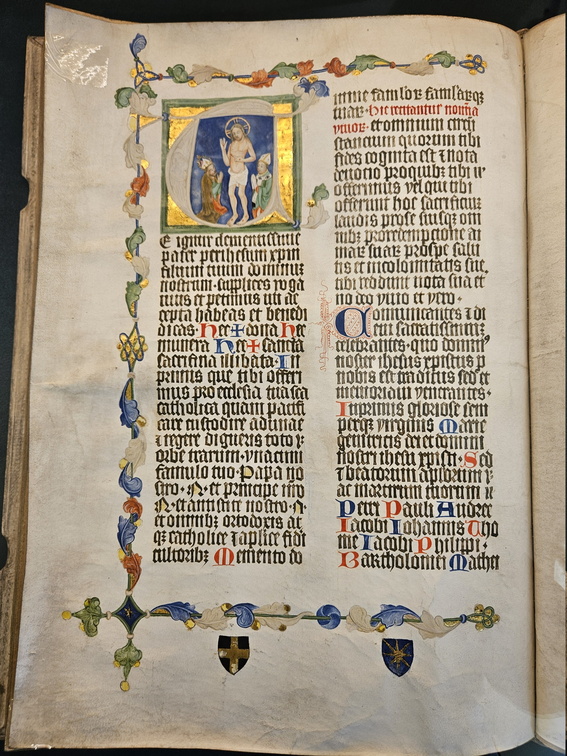 E igitur clementissime
pater per ihesum xpm
filium tuum dominum
nostrum. supplices roga
mus et petimus uti ac
cepta habeas et benedi
dicas. Hec + dona Hec
munera Hec + sancta
sacrificia illibata. In
primis que tibi offeri
mus pro ecclesia tua sca
catholica quam pacifi
care custodire adunare
et regere digneris toto or
orbe terrarum. vna cum
famulo tuo. Papa no
stro. N. et principe nro
N. et antistite nostro. N.
et omnibus ortodoxis at
qz catholice et aplice fidei
cultoribz Memento do
mine famlor famlarqz
tuar. hic recitantur nomina
viuor. et omnium circu
stancium quorum tibi
fides cognita est et nota
deuotio pro quibz tibi
offerimus vel qui tibi
offerunt hoc sacrificiu
laudis pro se suisqz om
nibz pro redempcione ai
mar suar pro spe salu
tis et incolomitatis sue.
tibi reddunt uota sua et
no deo viuo et vero.
Communicantes et di
em sacratissimum
celebrantes. quo dominus
noster ihesus xpistus p
nobis est traditus sed et
memoriam venerantes.
Inprimis gloriose sem
perqz virginis Marie
genitricis dei et domini
nostri ihesu xpisti. Sed
et beatorum aplorum
ac martirum tuorum
Petri Pauli Andree
Iacobi Iohannis Tho
me Iacobi Philippi.
Bartholomei Mathei